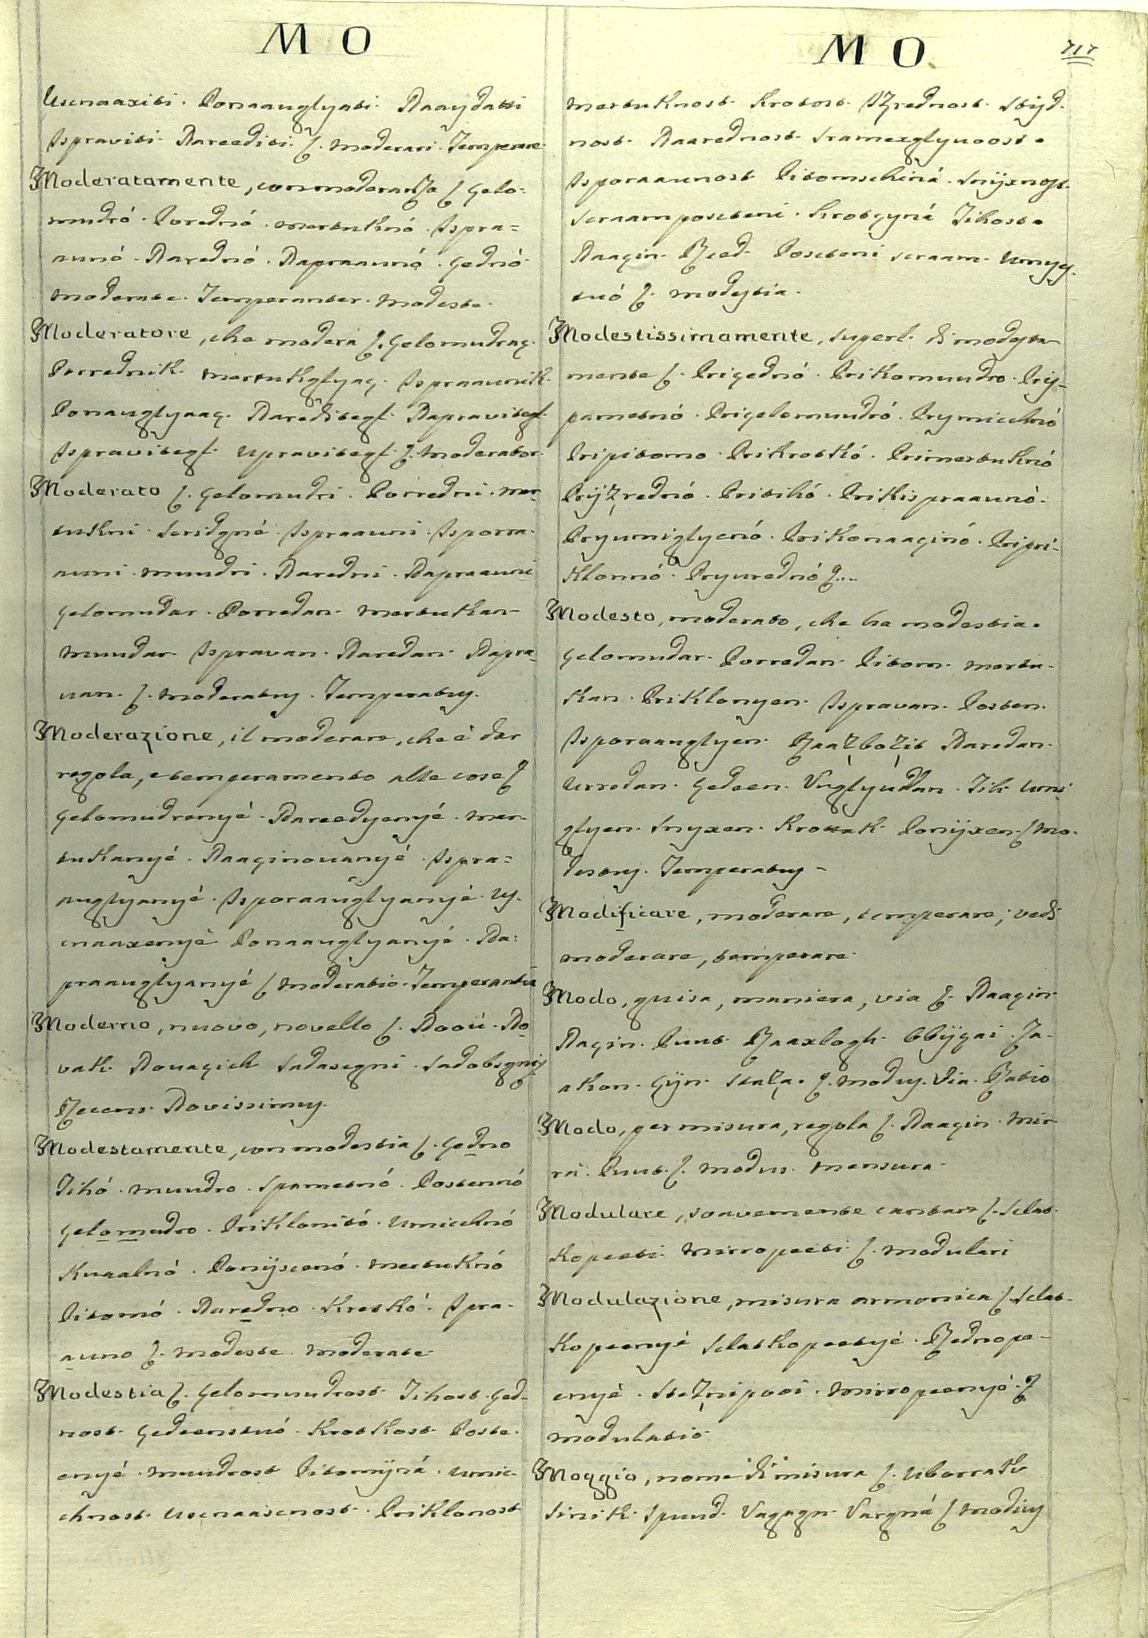 M O
Usenaaxiti. Ponaauglyati. Naaydatti
Ispraviti. Nareediti. ſ. moderari. Temperare
Moderatamente, con moderanza ſ Gelo-
mudró. Porednó. mertuknó. Ispra=
aunó. Narednó. Napraaunó. Gednó.
moderate. Temperanter. modeste.
Moderatore, che modera ſ. Gelomudraç.
Porrednik. mertukglyaç. Ispraaunik.
Ponauglyaaç. Nareditegl. Napravitegl.
Ispravitegl. Upravitegl. ſ. moderator.
Moderato ſ. Gelomudri. Porredni. mer-
tukni. Ispraauni. Isporra-
auni. muudri. Naredni. Napraauni
Gelomudar. Porredan. mertukan-
muudar. Ispravan. Naredan. Napra-
van. ſ. moderatuy. Temperatuy.
Moderazione, il moderare, che è dar
regola, e temperamento alle cose ſ
Gelomudrenyé. Nareedyenyé. mer-
tukanyé. Naaginovanyé. Ispra=
auglyanyé. Isporaauglyanyé. Uy-
enaaxenyé Ponaauglyanyé. Na-
praauglyanyé ſ moderatio. Temperantia
Moderno, nuovo, novello ſ. Noovi. No
vak. Novagich Sadasegni. Sadobsgniy
Recens. Novissimuy.
Modestamente, con modestia ſ. Gedno
Tihó. muudro. Spametnó. Postennó
Gelomudro. Priklonitó. Umicchnó
Kuaalnó. Poniyscenó. mertuknó
Pitomó. Naredno. Krotkó. Ispra-
auno ſ. modeste. moderate
Modestia ſ. Gelomuudrost. Tihost. Ged-
nost. Gedeenstuó. Krotkost. Poste-
enyé. muudrost Pitomijná. Umic-
chnost. Usenaascnost. Priklonost
M O
717
mertuknost. Krotost. Uzrednost. Stijd-
nost. Naarednost. Sramexglyvoost.
Isporaaunost Pitomschiná. Snijxnost.
Scraampostteni. Krotgyné Tikost.
Naagin. Reed. Posteni scraam. Umyg-
tuó ſ. modestia.
Modestissimamente, superl. di modesta-
mente ſ. Prigednó. Prikomuudro. Pris-
pametnó. Prigelomuudró. Prymicchnó
Pripitomo. Prikrotkó. Primertuknó
Prijzrednó. Pritihó. Prikispraaunó.
Pryumiglyenó. Prikonaaginó. Pripri-
klonnó. Pryurednó ſ...
Modesto, moderato, che ha modestia.
Gelomudar. Porredan. Pitom. mertu-
kan. Priklonyen. Ispravan. Posten.
Isporaauglyen. Raazloxit Naredan.
Urredan. Gedeen. Uuglyudan. Tik. Umi
glyen. Snyxen. Krotak. Ponijxen. ſ Mo-
destuy. Temperatuy-
Modificare, moderare, temperare; vedi
moderare, temperare.
Modo, guisa, maniera, via ſ. Naagin.
Nagin. Puut. Raaxlogh. Obijçai. Za-
akon. Gijn. Staza. ſ. moduy. Via. Ratio
Modo, per misura, regola ſ. Naagin. Mir-
ra. Puut. ſ. modus. mensura.
Modulare, soavemente cantare ſ. Slat-
kopeeti. Mirropeeti ſ. modulari
Modulazione, misura armonica ſ. Slat-
kopeenyé Slatkopeetyé. Rednope-
enyé. Mirropeenyé. ſ
modulatio.
Moggio, nome di misura ſ. Uborrak
Sinik. Spuud. Vagagn. Vargná ſ modiuy